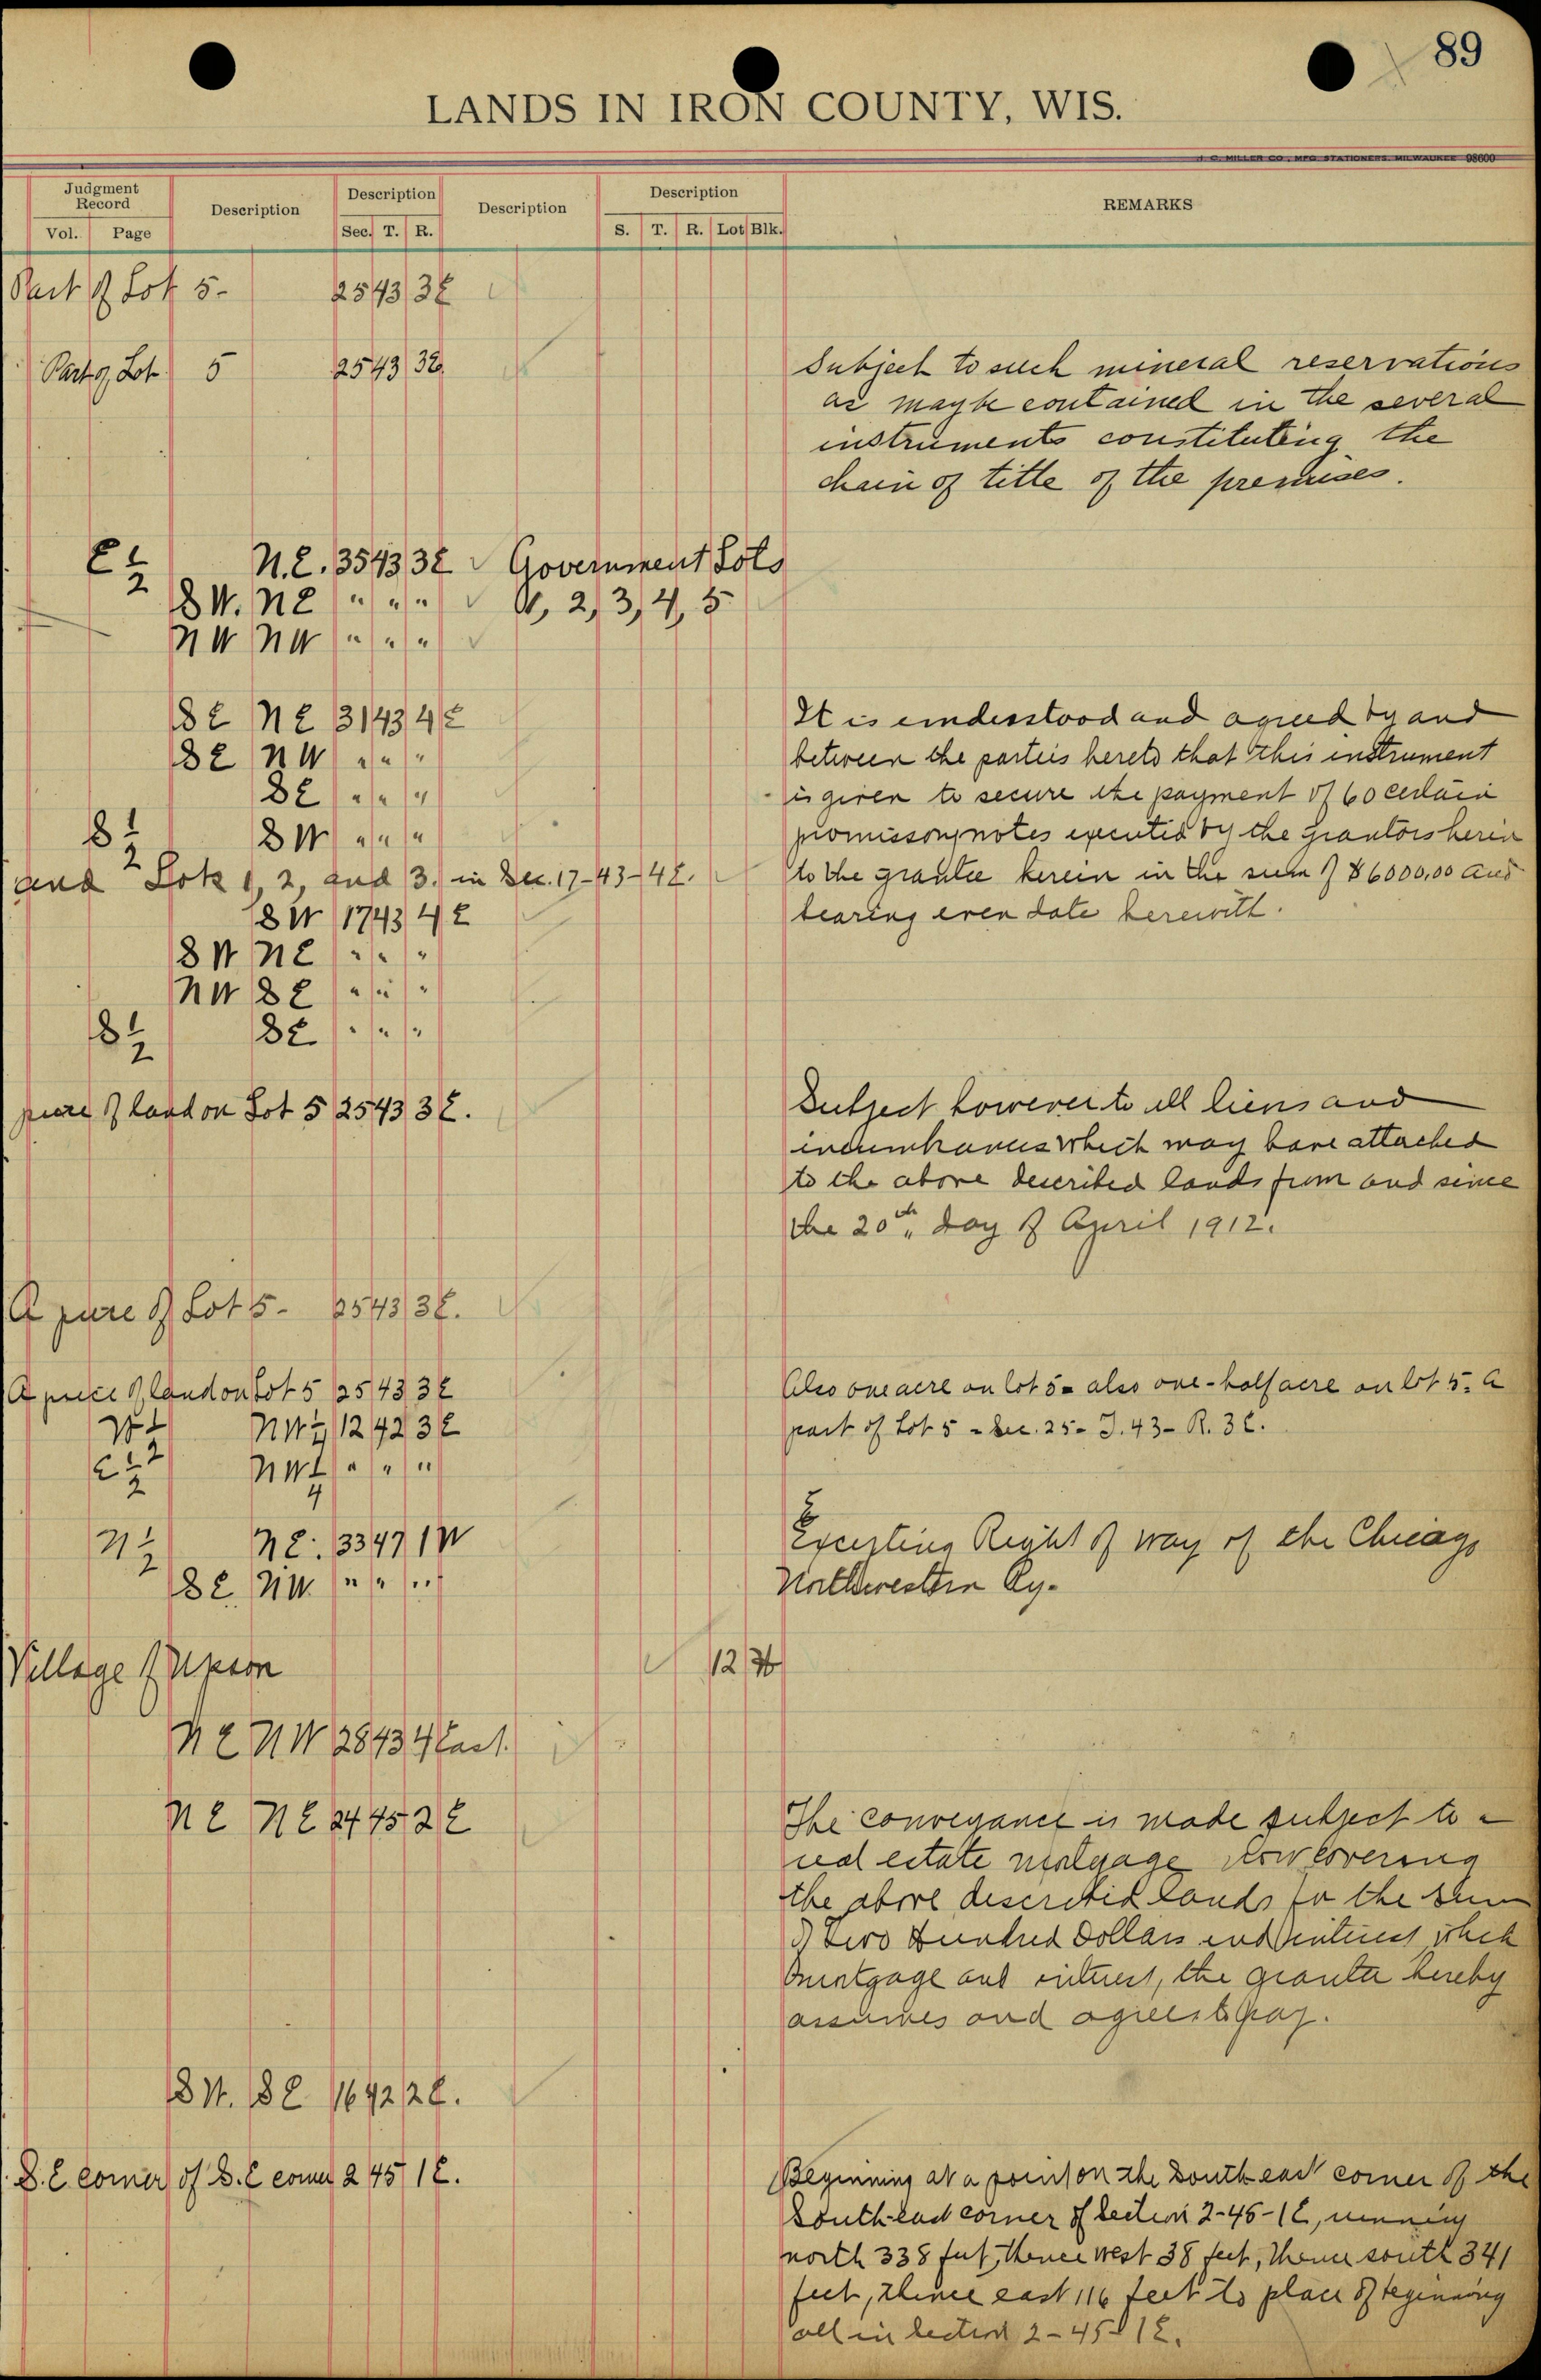 89
LANDS IN IRON COUNTY, WIS.
J. C. MILLER CO., MFG. STATIONERS, MILWAUKEE 98600
Judgment Record
Vol. Page
Description
Description
Sec. T. R.
Description
Description
S. T. R. Lot Blk.
REMARKS
Part of Lot 5- 25 43 3E
Part of Lot 5 25 43 3E
Subject to such mineral reservations
as may be contained in the several
instruments constituting the
chain of title of the premises.
E 1/2 N.E. 35 43 3E Government Lots
SW. NE " " " 1, 2, 3, 4, 5
NW NW " " "
SE NE 31 43 4E
SE NW " " "
SE " " "
S 1/2 SW " " "
and Lots 1, 2, and 3. in Sec. 17-43-4E.
SW 17 43 4E
SW NE " " "
NW SE " " "
S 1/2 SE " " "
It is understood and agreed by and
between the parties hereto that this instrument
is given to secure the payment of 60 certain
promissory notes executed by the grantors herein
to the grantee herein in the sum of $6000.00 and
bearing even date herewith.
piece of land on Lot 5 25 43 3E.
Subject however to all liens and
incumbrances which may have attached
to the above described lands from and since
the 20th day of April 1912.
A piece of Lot 5- 25 43 3E.
A piece of land on Lot 5 25 43 3E
W 1/2 NW 1/4 12 42 3E
E 1/2 NW 1/4 " " "
Also one acre on lot 5- also one-half acre on lot 5- A
part of Lot 5 - Sec. 25- T. 43- R. 3E.
N 1/2 NE. 33 47 1W
SE NW. " " "
Excepting Right of way of the Chicago
Northwestern Ry.
Village of Upson 12
NE NW 28 43 4 East.
NE NE 24 45 2E
The conveyance is made subject to a
real estate mortgage now covering
the above described lands for the sum
of Two Hundred Dollars and interest which
mortgage and interest, the grantee hereby
assumes and agrees to pay.
SW. SE 16 42 2E.
S.E corner of S.E corner 2 45 1E.
Beginning at a point on the South east corner of the
South-east corner of Section 2-45-1E, running
north 338 feet, thence west 38 feet, thence south 341
feet, thence east 116 feet to place of beginning
all in Section 2-45-1E.